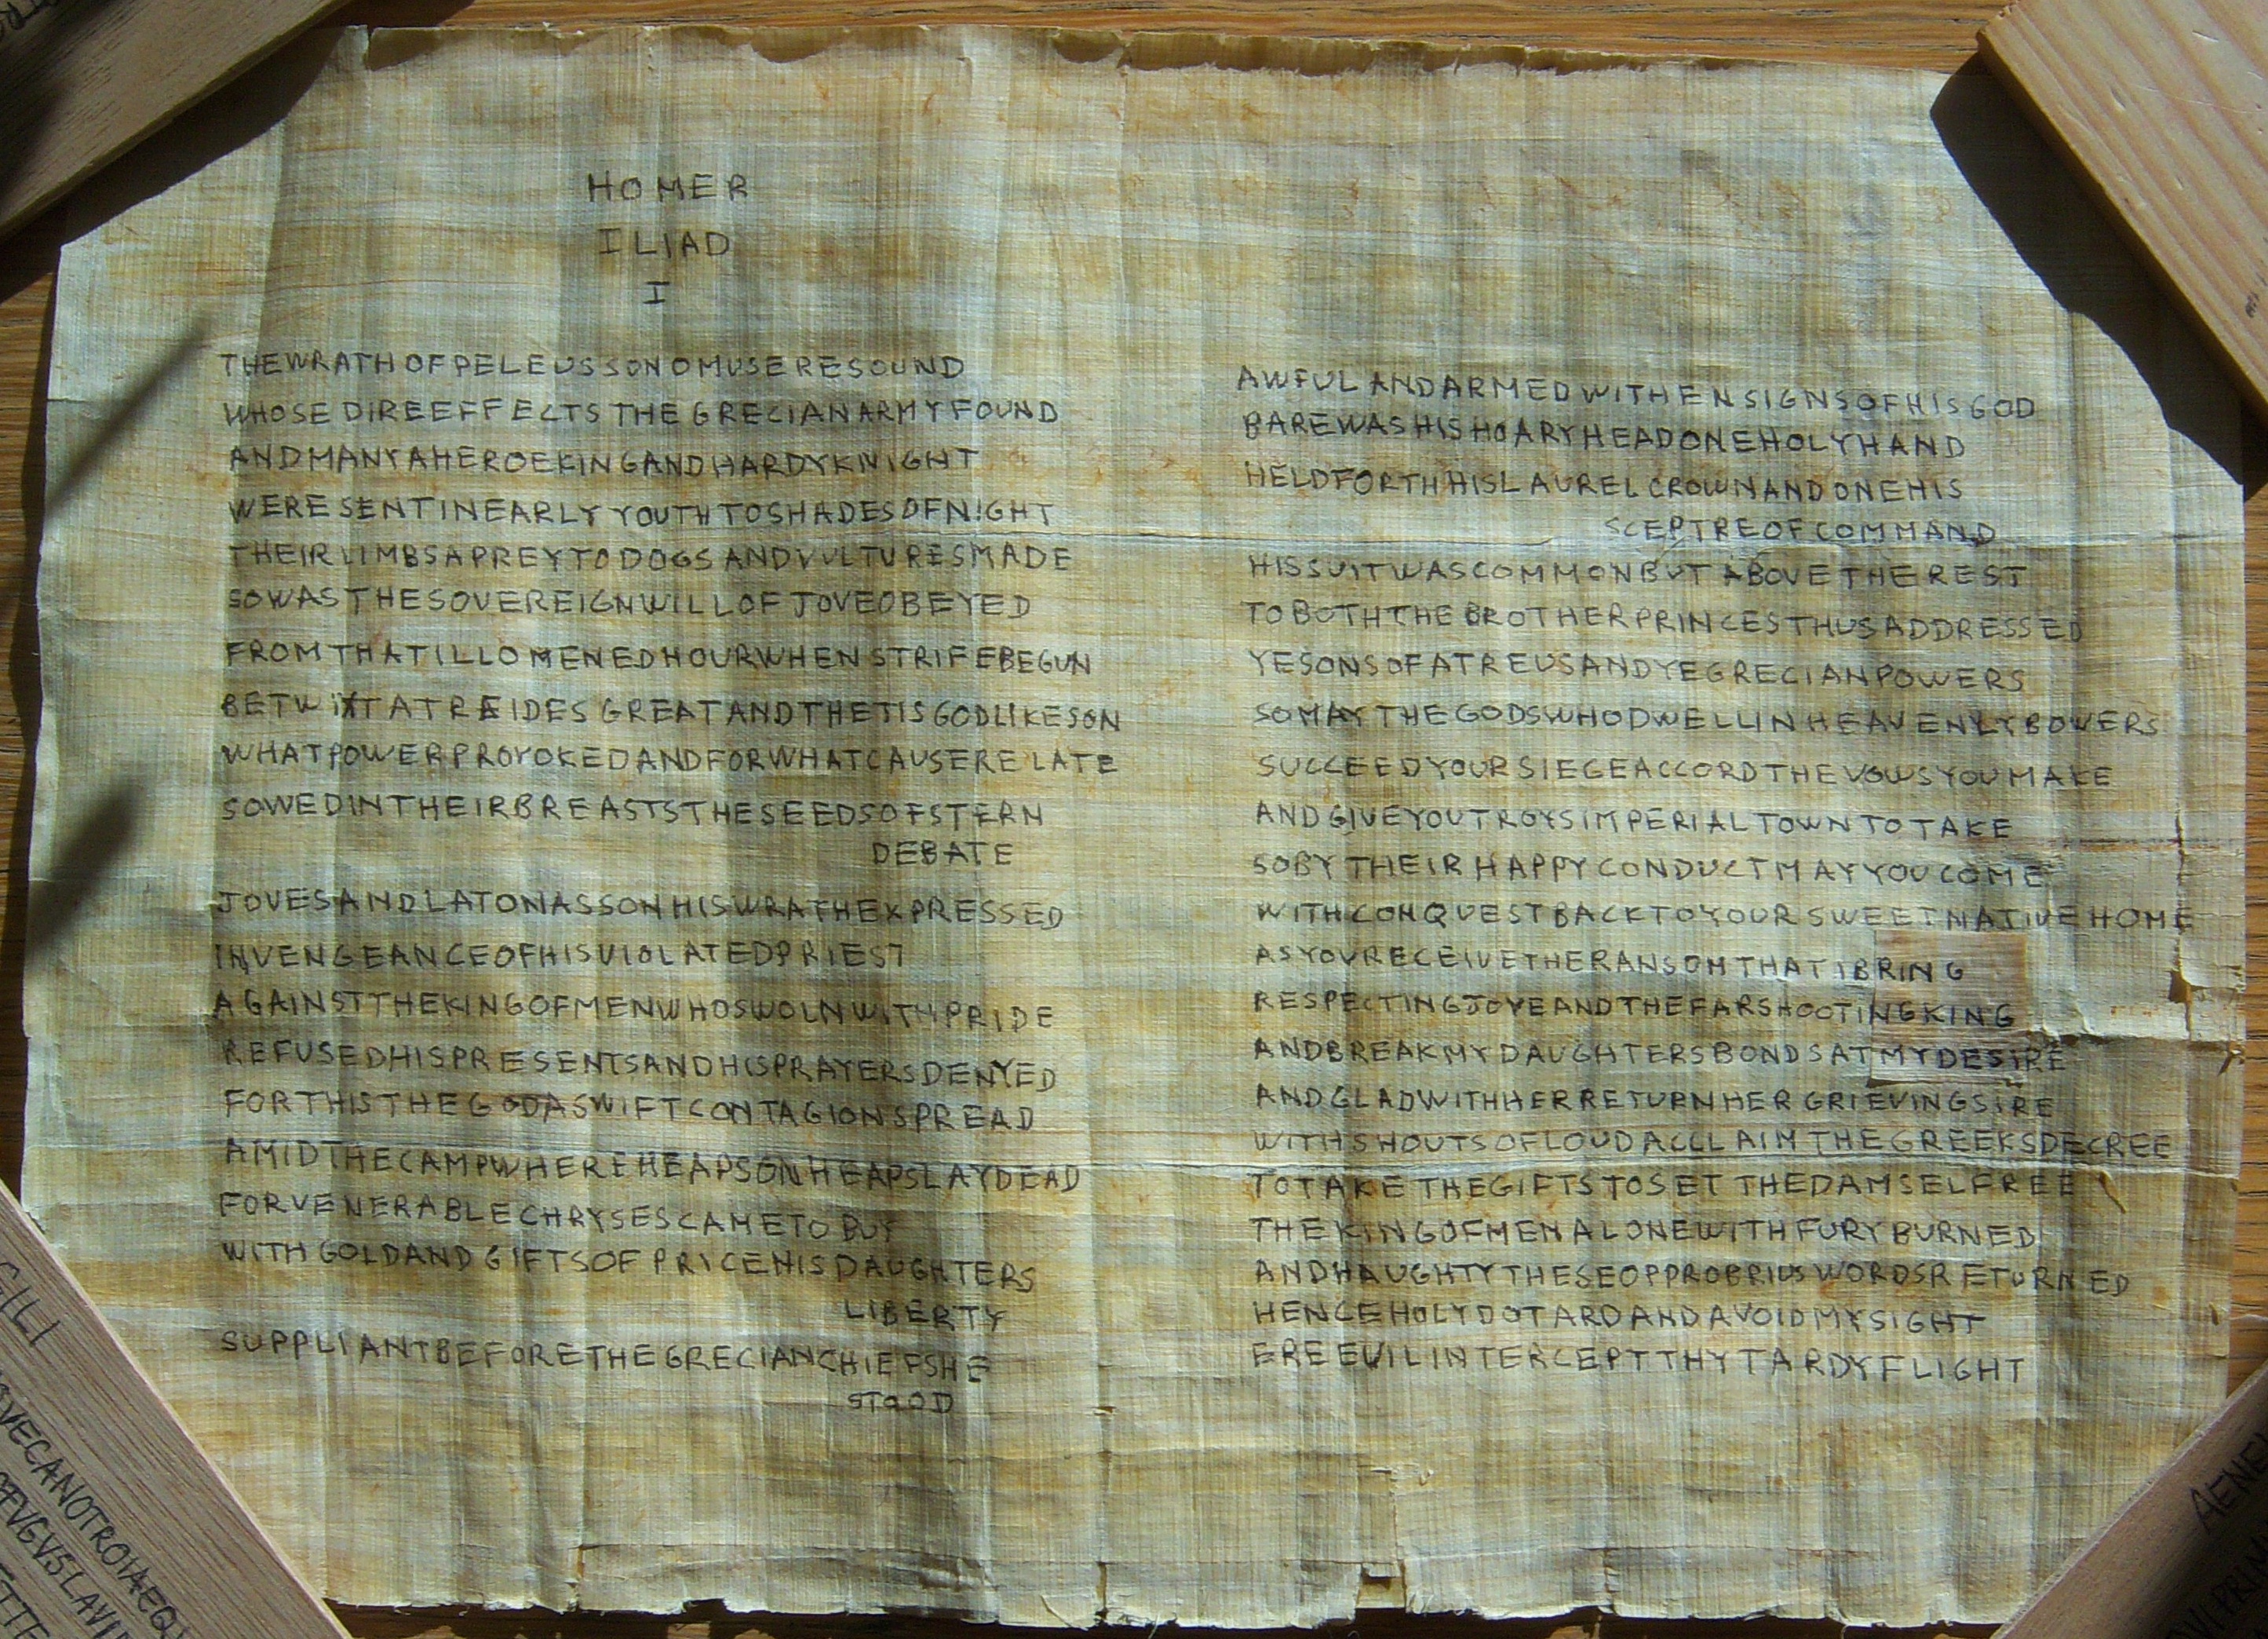 HOMER
ILIAD
I
THEWRATHOFPELEUSSONOMUSERESOUND
WHOSEDIREEFFECTSTHEGRECIANARMYFOUND
ANDMANYAHEROEKINGANDHARDYKNIGHT
WERESENTINEARLYYOUTHTOSHADESOFNIGHT
THEIRLIMBSAPREYTODOGSANDVULTURESMADE
SOWASTHESOVEREIGNWILLOFJOVEOBEYED
FROMTHATILLOMENEDHOURWHENSTRIFEBEGUN
BETWIXTATREIDESGREATANDTHETISGODLIKESON
WHATPOWERPROVOKEDANDFORWHATCAUSERELATE
SOWEDINTHEIRBREASTSTHESEEDSOFSTERN
DEBATE
JOVESANDLATONASSONHISWRATHEXPRESSED
INVENGEANCEOFHISVIOLATEDPRIEST
AGAINSTTHEKINGOFMENWHOSWOLNWITHPRIDE
REFUSEDHISPRESENTSANDHISPRAYERSDENYED
FORTHISTHEGODASWIFTCONTAGIONSPREAD
AMIDTHECAMPWHEREHEAPSONHEAPSLAYDEAD
FORVENERABLECHRYSESCAMETOBUY
WITHGOLDANDGIFTSOFPRICEHISDAUGHTERS
LIBERTY
SUPPLIANTBEFORETHEGRECIANCHIEFSHE
STOOD
AWFULANDARMEDWITHENSIGNSOFHISGOD
BAREWASHISHOARYHEADONEHOLYHAND
HELDFORTHHISLAURELCROWNANDONEHIS
SCEPTREOFCOMMAND
HISSUITWASCOMMONBUTABOVETHEREST
TOBOTHTHEBROTHERPRINCESTHUSADDRESSED
YESONSOFATREUSANDYEGRECIANPOWERS
SOMAYTHEGODSWHODWELLINHEAVENLYBOWERS
SUCCEEDYOURSIEGEACCORDTHEVOWSYOUMAKE
ANDGIVEYOUTROYSIMPERIALTOWNTOTAKE
SOBYTHEIRHAPPYCONDUCTMAYYOUCOME
WITHCONQUESTBACKTOYOURSWEETNATIVEHOME
ASYOURECEIVETHERANSOMTHATIBRING
RESPECTINGJOVEANDTHEFARSHOOTINGKING
ANDBREAKMYDAUGHTERSBONDSATMYDESIRE
ANDGLADWITHHERRETURNHERGRIEVINGSIRE
WITHSHOUTSOFLOUDACCLAIMTHEGREEKSDECREE
TOTAKETHEGIFTSTOSETTHEDAMSELFREE
THEKINGOFMENALONEWITHFURYBURNED
ANDHAUGHTYTHESEOPPROBRIUSWORDSRETURNED
HENCEHOLYDOTARDANDAVOIDMYSIGHT
EREEVILINTERCEPTTHYTARDYFLIGHT